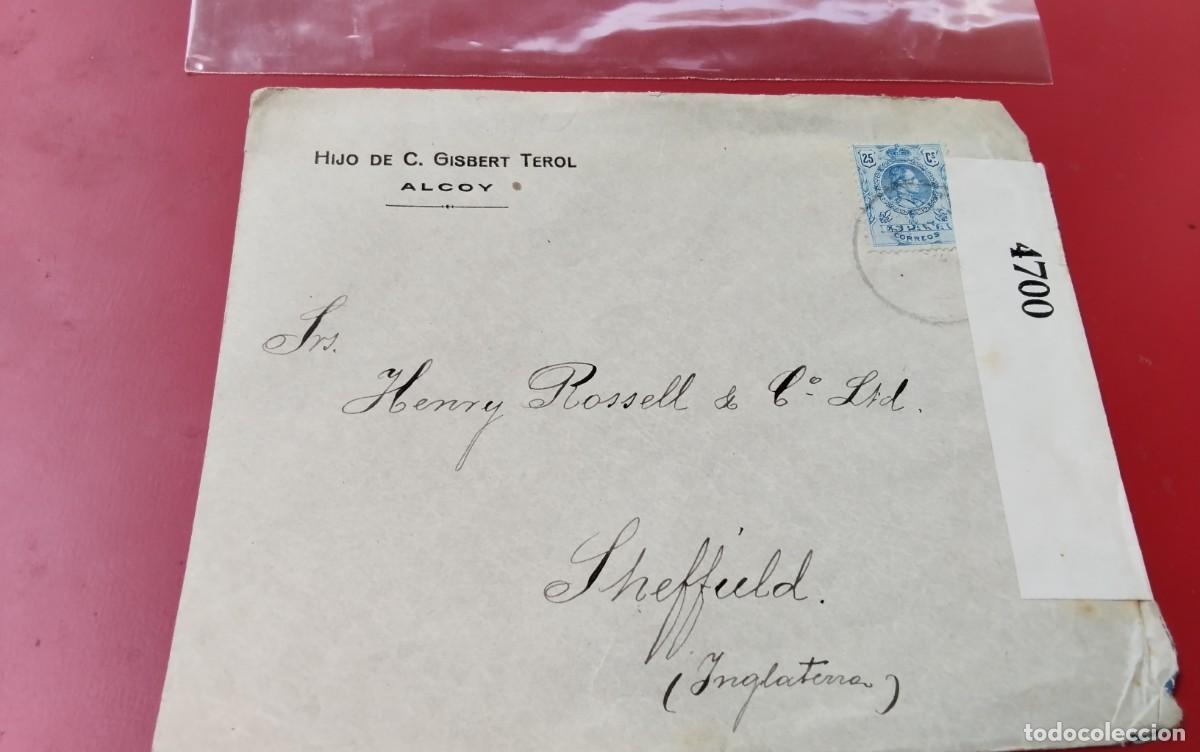 HIJO DE C. GISBERT TEROL
ALCOY
25 Cs
CORREOS
4700
Srs.
Henry Rossell & Cº Ltd.
Sheffield.
(Inglaterra)
todocoleccion